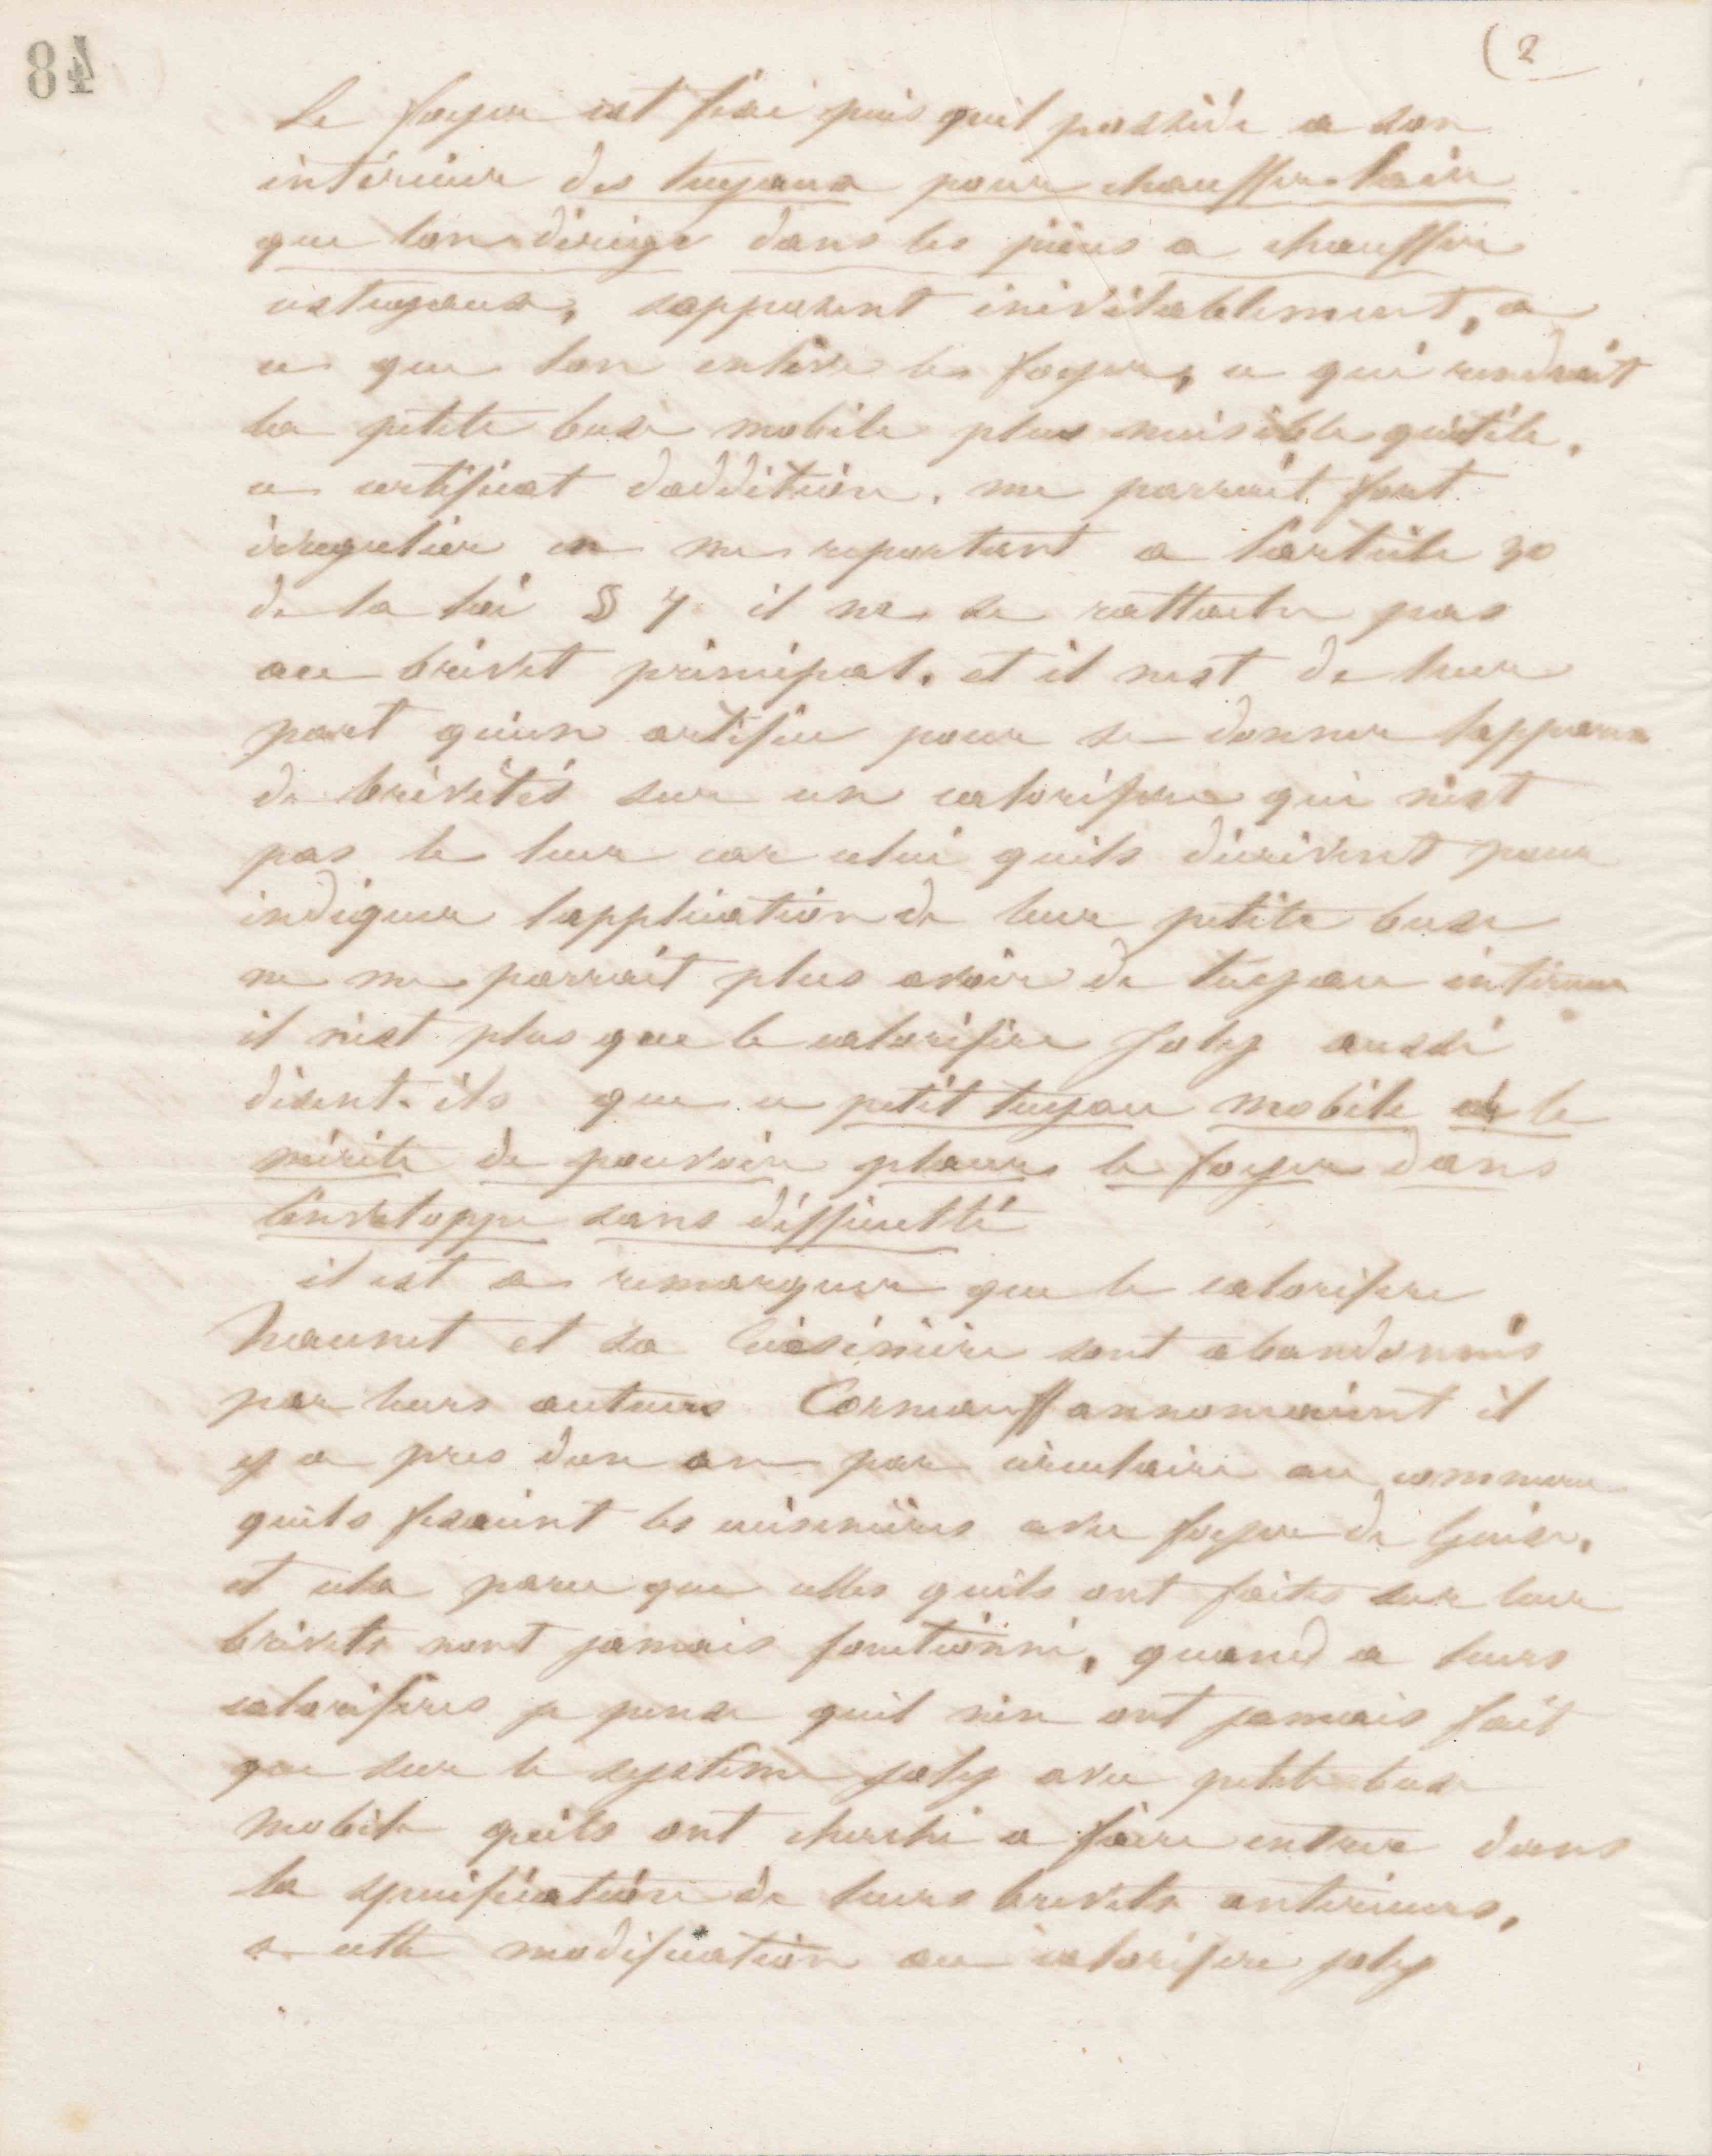 84
(2
Le foyer est fixe puis quil possède a son
intérieur des tuyaux pour chauffer lair
que lon dirige dans les pièces a chauffer
ces tuyaux, sopposent inévitablement, a
ce que lon enlève le foyer, ce qui rendrait
la petite buse mobile plus nuisible qutile,
ce certificat daddition, me parrait fort
irregulier en me reportant a larticle 30
de la loi § 7 il ne se rattache pas
au brevet principal, et il nest de leur
part quun artifice pour se donner lapparence
de brévétés sur un calorifère qui nest
pas le leur car celui quils décrivent pour
indiquer lapplication de leur petite buse
ne me parrait plus avoir de tuyau intérieur
il nest plus que le calorifère Joly aussi
disent-ils que ce petit tuyau mobile a le
mérite de pouvoir placer le foyer dans
lenveloppe sans difficulté
il est a remarquer que le calorifère
et sa cuisinière sont abandonnés
par leurs auteurs annoncaient il
y a pres dun an par circulaire au commerce
quils fesaient les cuisinières avec foyer de Guise,
et cela parce que celles quils ont faites sur leur
brévets nont jamais fonctionné, quand a leurs
calorifères je pense quil nen ont jamais fait
que sur le système Joly avec petite buse
mobile quils ont cherché a faire entrer dans
la spécification de leurs brevets antérieurs,
cette modification au calorifère Joly